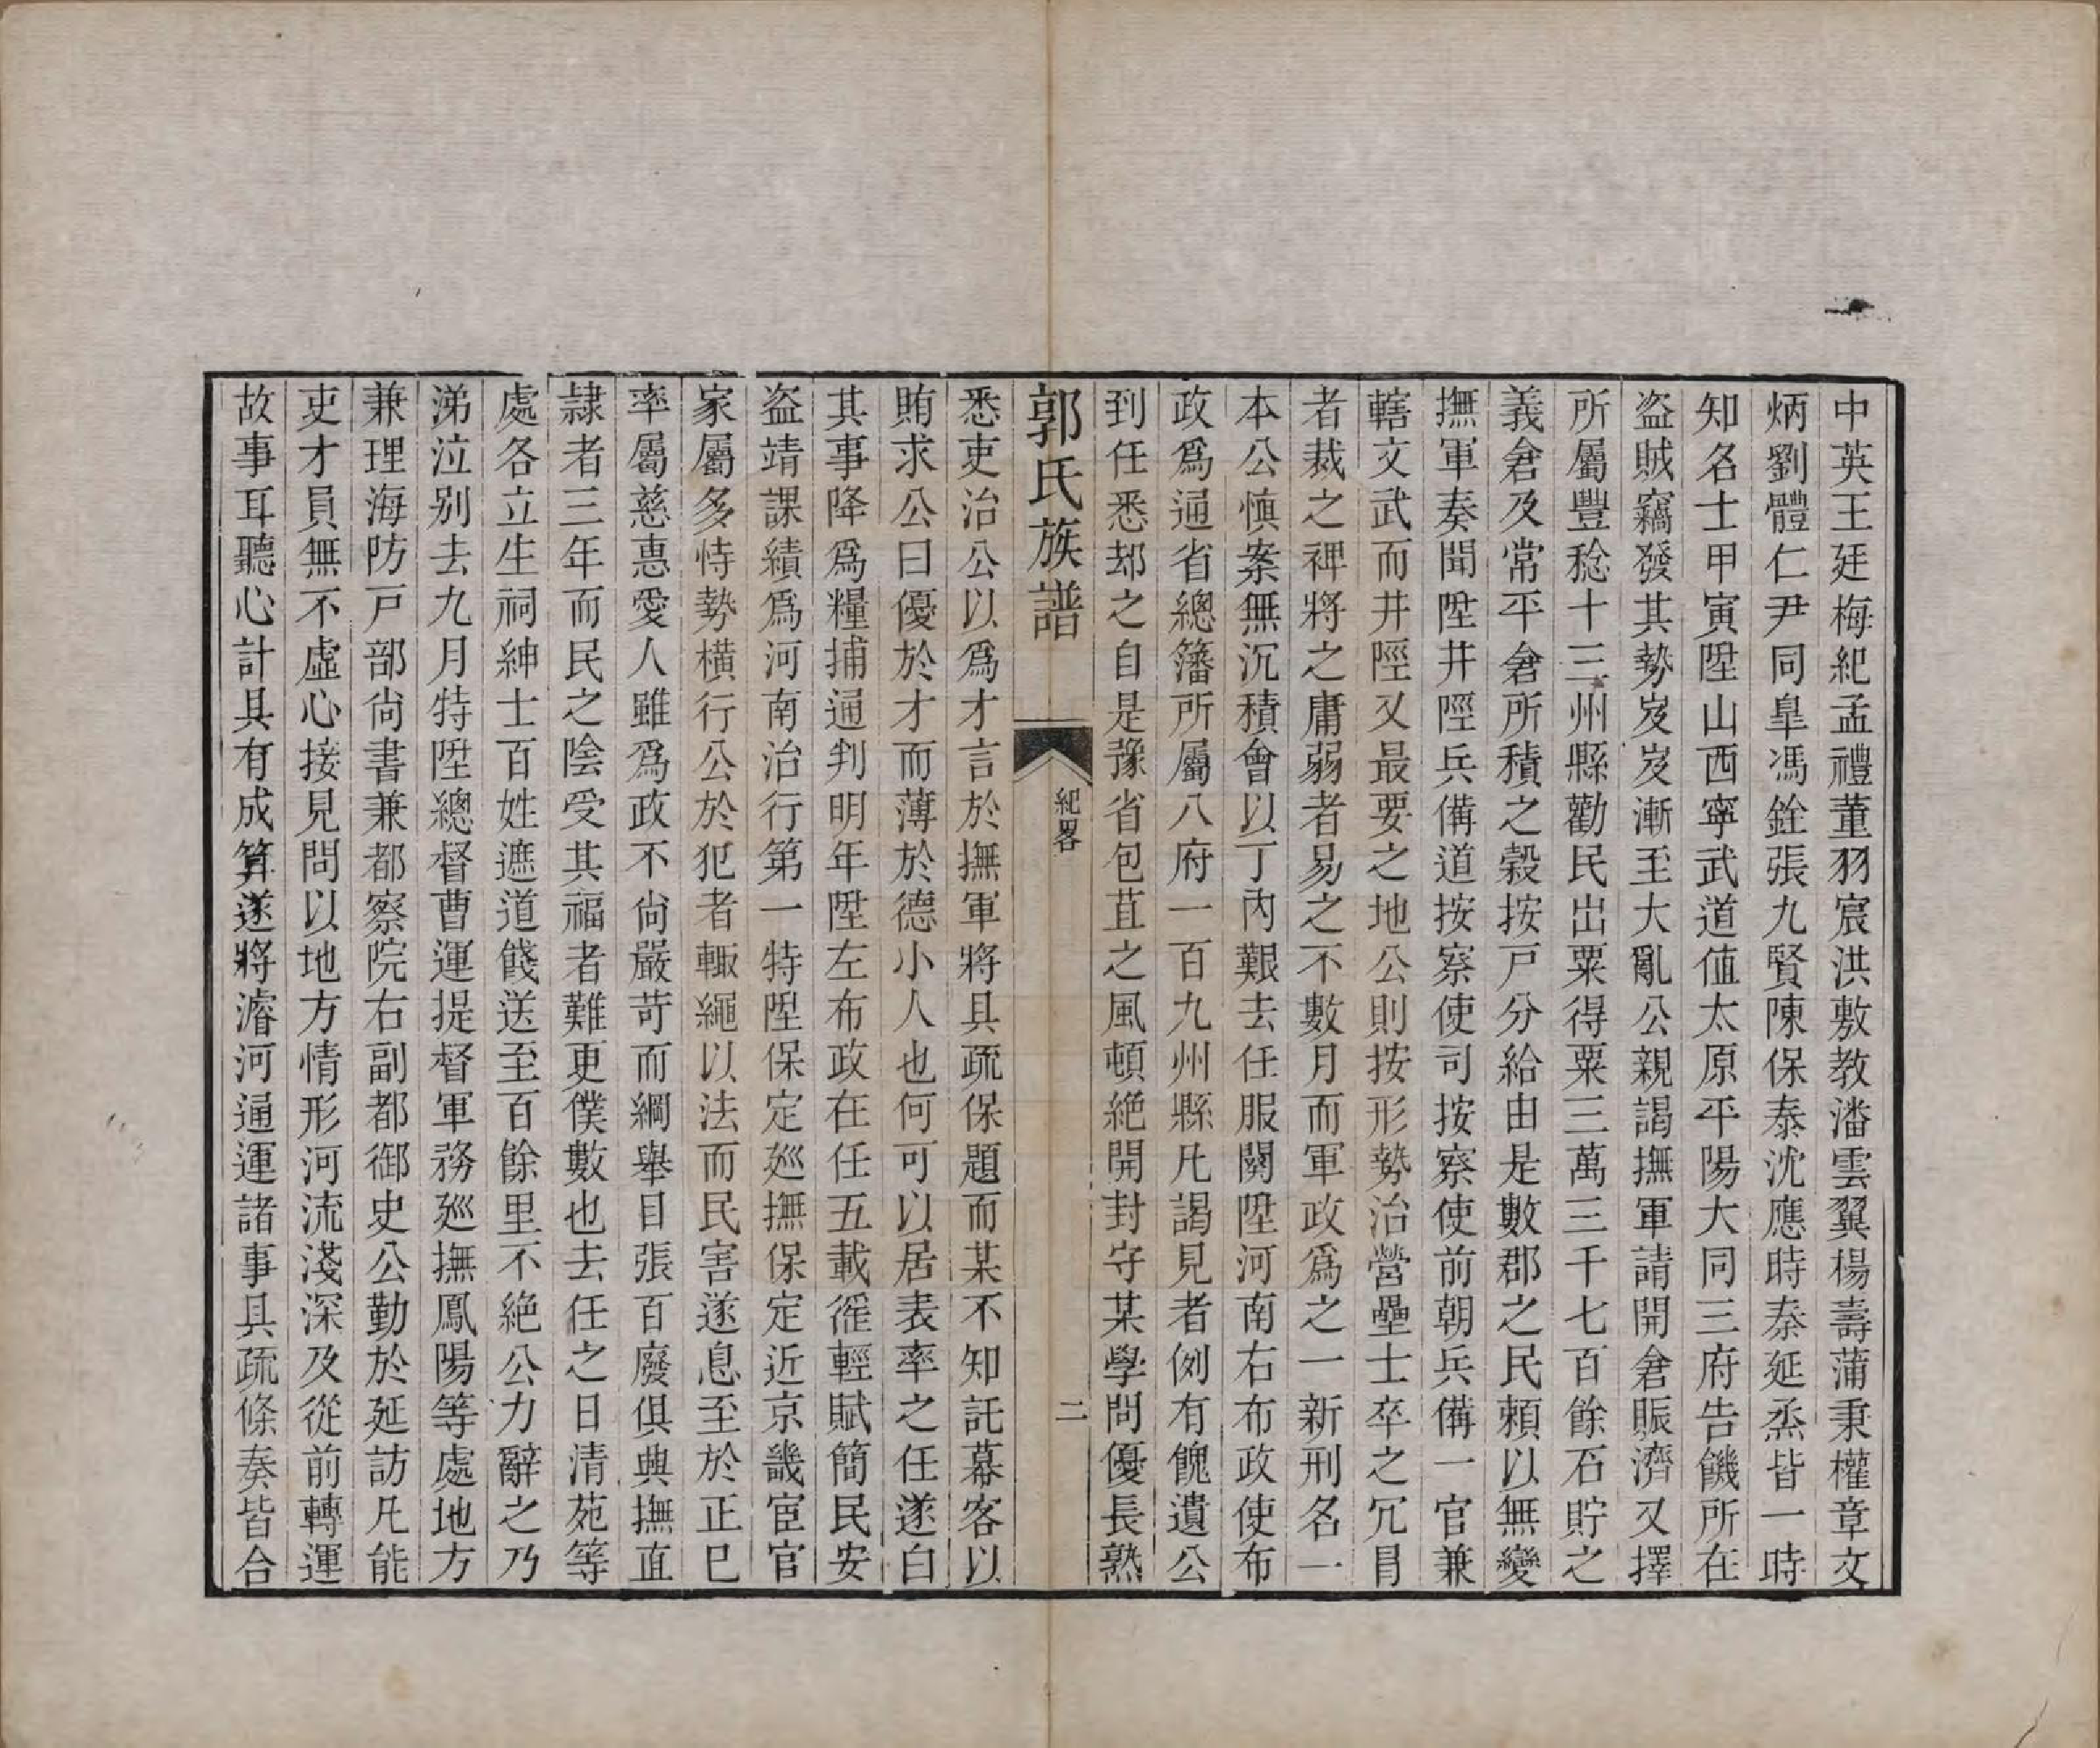 中英王廷梅紀孟禮董羽宸洪敷教潘雲翼楊壽蒲秉權章文
炳劉體仁尹同臯馮銓張九賢陳保泰沈應時秦延烝皆一時
知名士甲寅陞山西寧武道值太原平陽大同三府告饑所在
盜賊竊發其勢岌岌漸至大亂公親謁撫軍請開倉賑濟又擇
所屬豐稔十三州縣勸民出粟得粟三萬三千七百餘石貯之
義倉及常平倉所積之穀按戸分給由是數郡之民賴以無變
撫軍奏聞陞井陘兵備道按察使司按察使前朝兵備一官兼
轄文武而井陘又最要之地公則按形勢治營壘士卒之冗冒
者裁之裨將之庸弱者易之不數月而軍政爲之一新刑名一
本公慎案無沉積會以丁內艱去任服闋陞河南右布政使布
政爲通省總籓所屬八府一百九州縣凡謁見者例有餽遺公
到任悉却之自是豫省包苴之風頓絕開封守某學問優長熟
郭氏族譜
紀畧
二
悉吏治公以爲才言於撫軍將具疏保題而某不知託幕客以
賄求公曰優於才而薄於德小人也何可以居表率之任遂白
其事降爲糧捕通判明年陞左布政在任五載徭輕賦簡民安
盜靖課績爲河南治行第一特陞保定廵撫保定近京畿宦官
家屬多恃勢橫行公於犯者輙繩以法而民害遂息至於正已
率屬慈惠愛人雖爲政不尙嚴苛而綱舉目張百廢俱典撫直
隷者三年而民之陰受其福者難更僕數也去任之日清苑等
處各立生祠紳士百姓遮道餞送至百餘里不絕公力辭之乃
涕泣别去九月特陞總督曹運提督軍務廵撫鳳陽等處地方
兼理海防戸部尙書兼都察院右副都御史公勤於延訪凡能
吏才員無不虛心接見問以地方情形河流淺深及從前轉運
故事耳聽心計具有成算遂將濬河通運諸事具疏條奏皆合